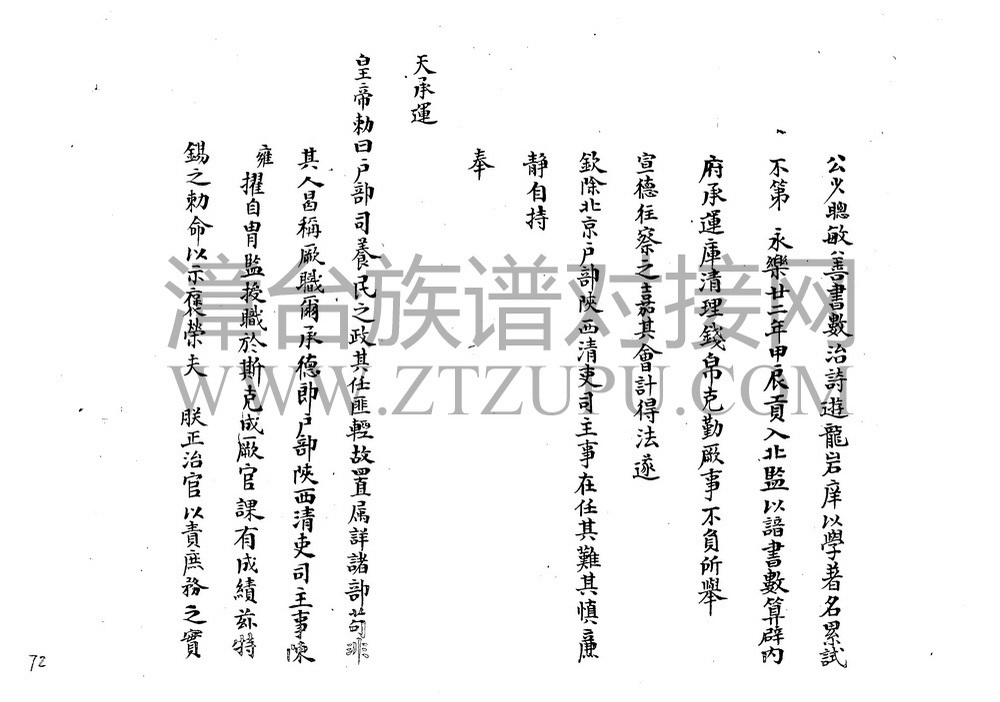 公少聰敏善書數治詩遊龍岩庠以學著名累試
不第 永樂廿二年甲辰貢入北監以諳書數算辟内
府承運庫清理錢帛克勤厥事不負所舉
宣德徃察之嘉其會計得法遂
欽除北京户部陝西清吏司主事在任其難其慎廉
静自持
奉
天承運
皇帝勅曰户部司養民之政其任匪輕故置属詳諸部苟非
其人曷稱厥職爾承德郎户部陝西清吏司主事陳
雍擢自胄監授職於斯克成厥官課有成績兹特
錫之勅命以示褒榮夫 朕正治官以責庶務之實
72
漳台族谱对接网
WWW.ZTZUPU.COM